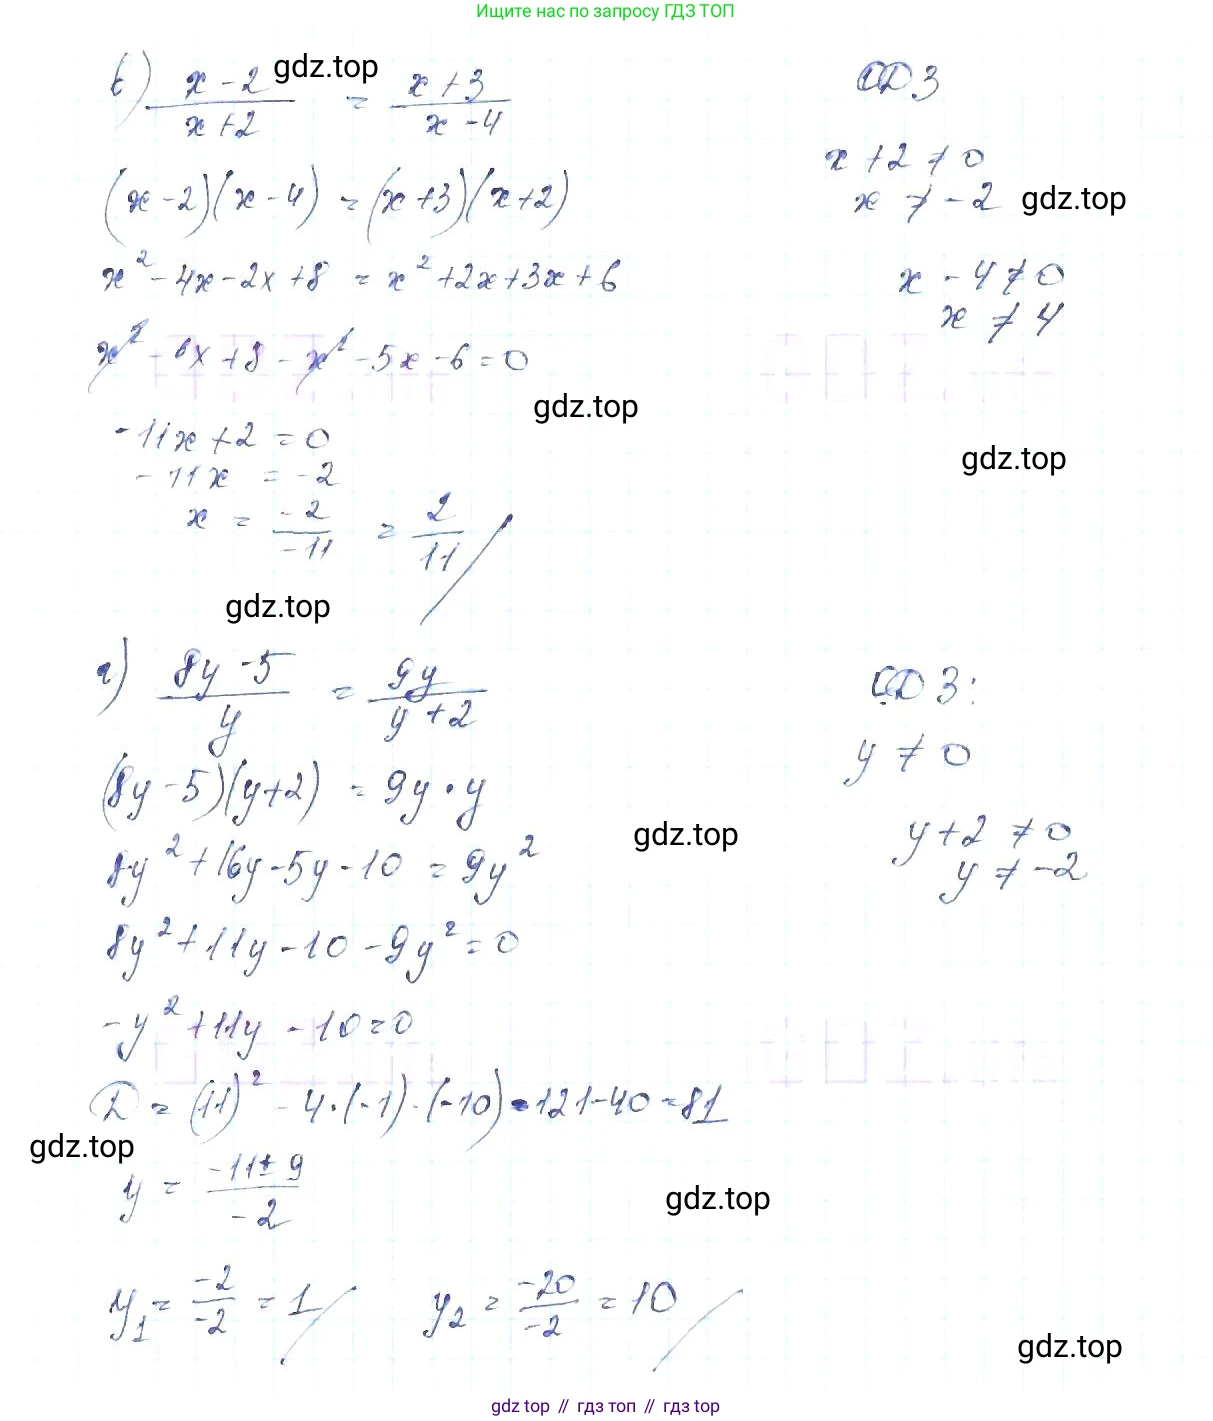 Ищите нас по запросу ГДЗ ТОП
в) (x-2)/(x+2) = (x+3)/(x-4)
ОДЗ
gdz.top
x+2≠0
x≠-2
gdz.top
x-4≠0
x≠4
(x-2)(x-4) = (x+3)(x+2)
x²-4x-2x+8 = x²+2x+3x+6
x²-6x+8-x²-5x-6=0
gdz.top
gdz.top
-11x+2=0
-11x = -2
x = -2/-11 = 2/11
gdz.top
г) (8y-5)/y = 9y/(y+2)
ОДЗ:
y≠0
y+2≠0
y≠-2
(8y-5)(y+2) = 9y·y
gdz.top
8y²+16y-5y-10 = 9y²
8y²+11y-10-9y²=0
-y²+11y-10=0
D = (11)²-4·(-1)·(-10)=121-40=81
gdz.top
y = (-11±9)/-2
gdz.top
y₁ = -2/-2 = 1
y₂ = -20/-2 = 10
gdz.top
gdz top // гдз топ // gdz top